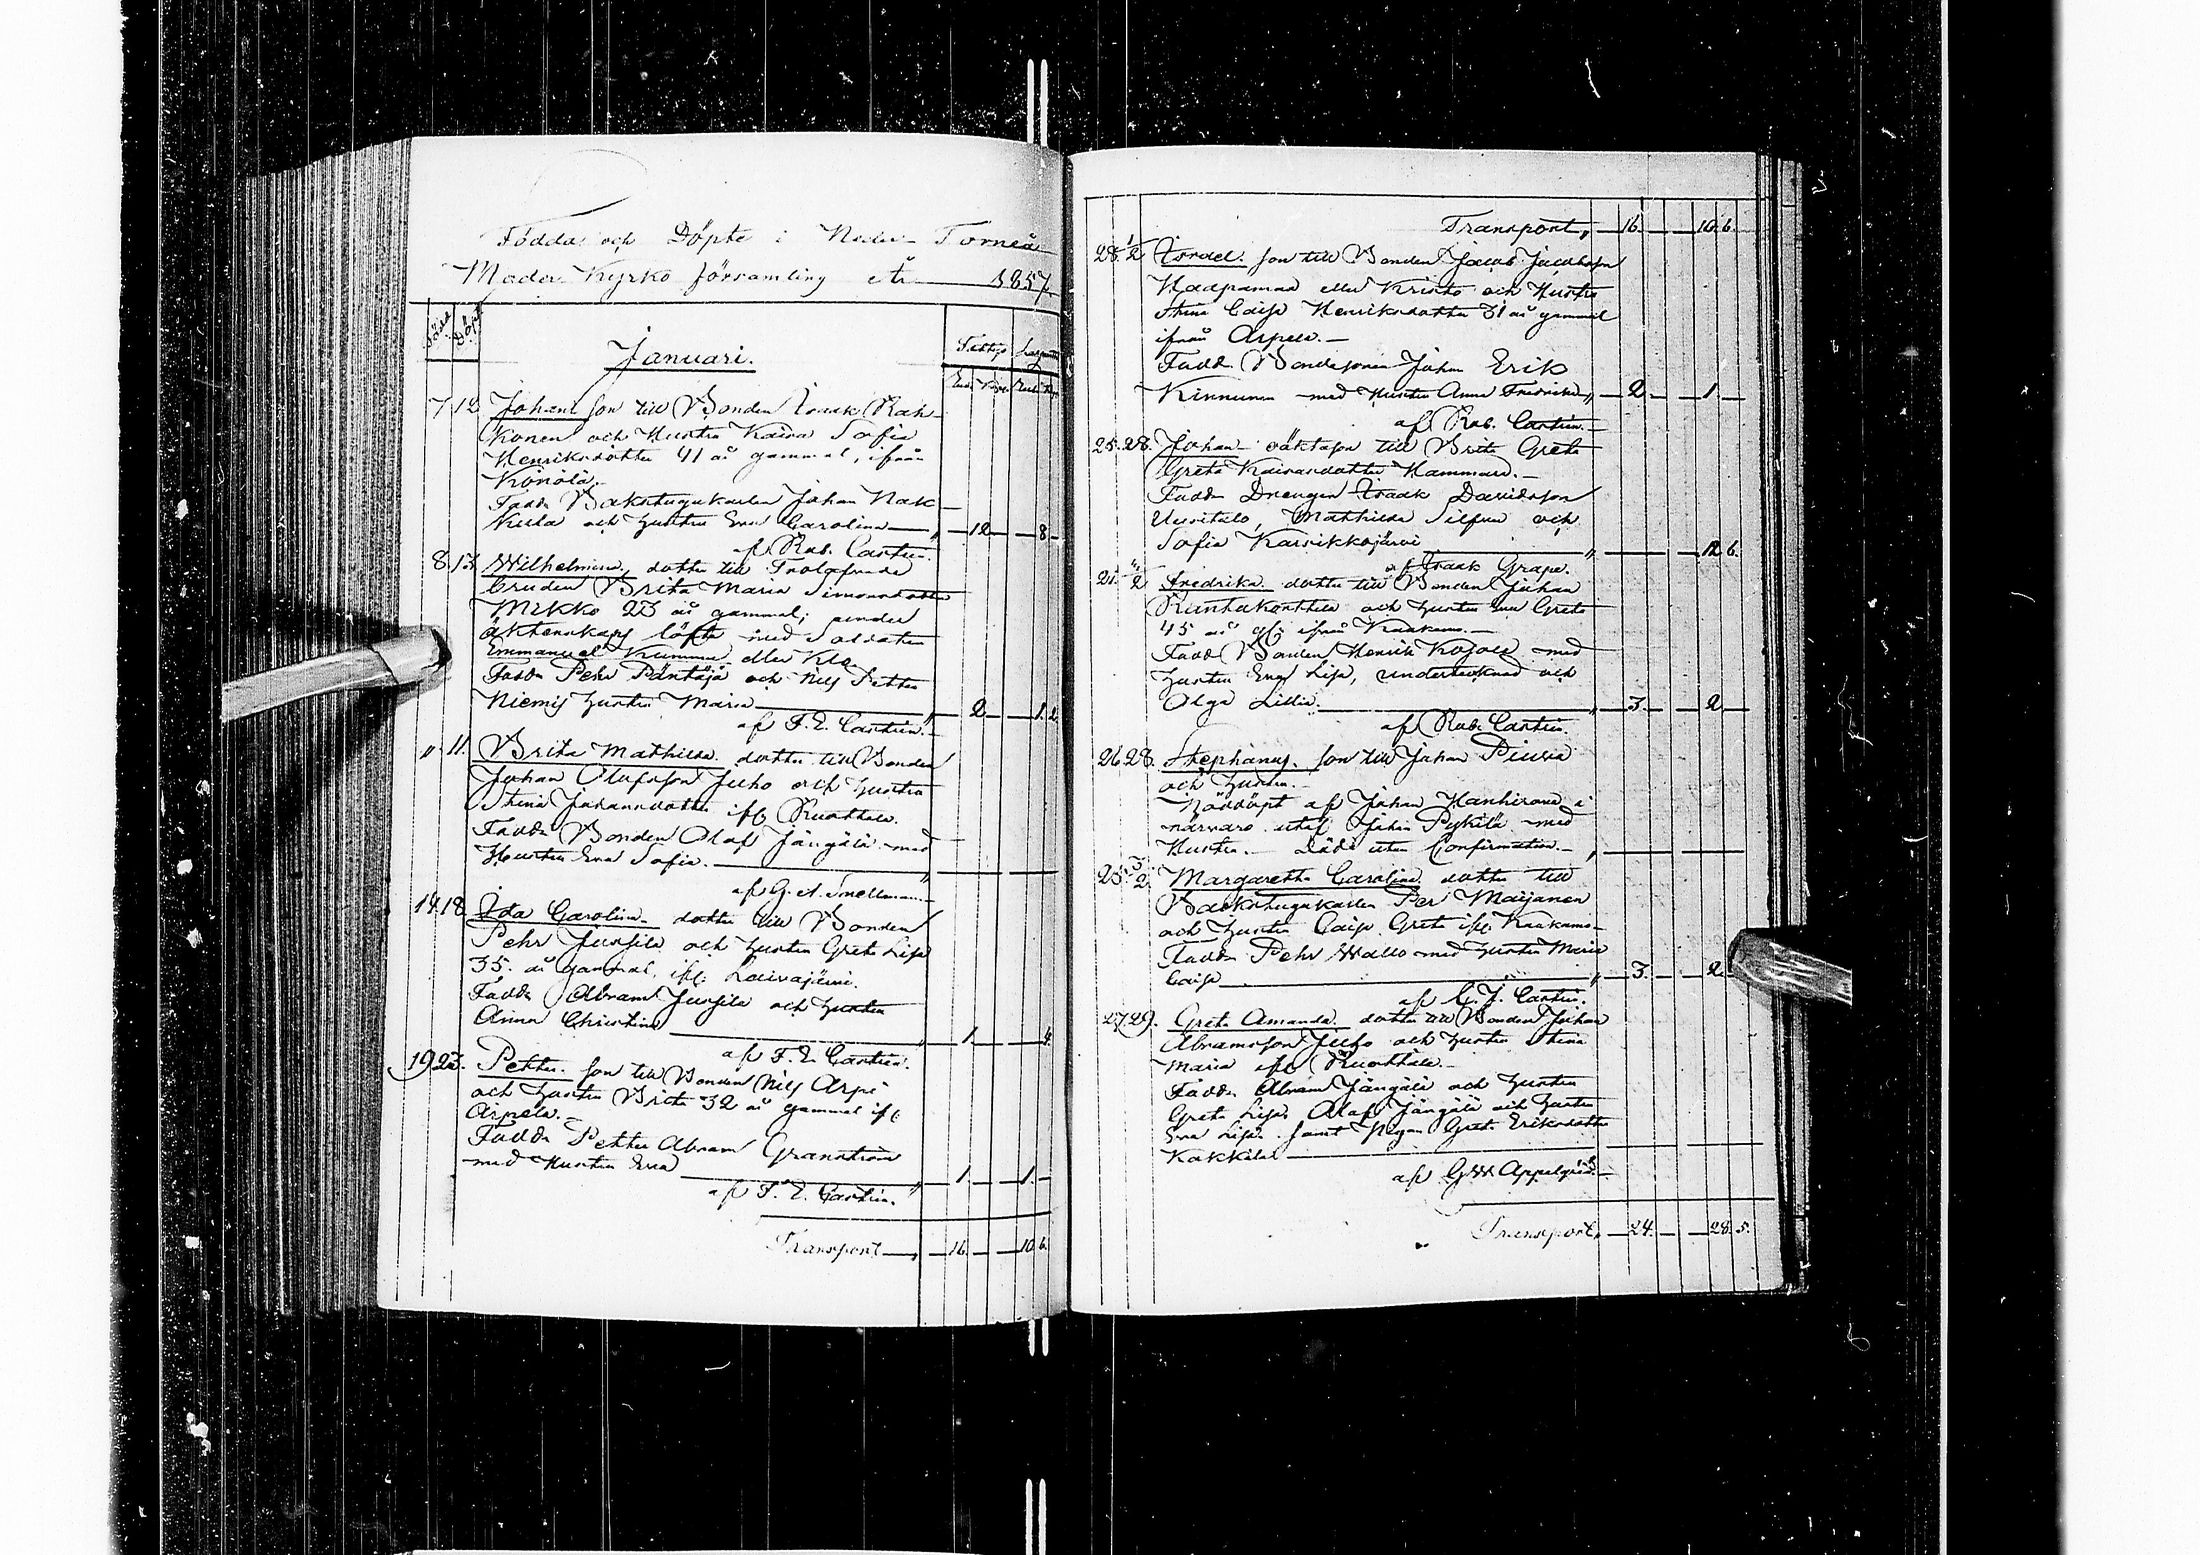 Födda och Döpte i Neder Torneå
Moder Kyrko församling år 1857.
Född Döpt
Januari.
7 12 Johan son till Bonden Isaak Rak-
konen och Hustru Kaisa Sofia
Henriksdotter 41 år gammal, ifrån
Könölä.
Fadd: Bakstugukarlen Johan Nak
kula och hustru Eva Carolina 12 8
af Rob. Castrén.
8. 13. Wilhelmina, dotter till
Brita Maria Simonsdotter
Mikko 23 år gammal, under
äktenskaps löfte med Soldaten
Emmanuel Kummu eller Kla
Fadd: Pehr Päntäjä och Nils Petter
Niemis hustru Maria 2 1. 2
af F. E. Castrén.
„ 11. Brita Mathilda, dotter till Bonden
Johan Olofsson Juho och hustru
Stina Johansdotter ifr. Ruottala.
Fadd: Bonden Olof Jängälä med
Hustru Eva Sofia.
af G. A. Snellman.
14. 18. Ida Carolina, dotter till Bonden
Pehr Jussila och hustru Greta Lisa
35. år gammal, ifr. Laivajärvi.
Fadd: Abram Jussila och hustru
Anna Christina 1. 4.
af F. E. Castrén.
19. 23. Petter. son till Bonden Nils Arpi
och hustru Brita 32 år gammal ifr
Arpela.
Fadd: Petter Abram Granström
med Hustru Eva 1. 1.
af F. E. Castrén.
Transport 16. 10. 6.
Transport, 16. 10. 6.
28. 1/2 Israel. son till Bonden Jacob Jacobsson
Haapamaa eller Kristo och Hustru
Stina Caisa Henriksdotter 31 år gammal
ifrån Arpela.
Fadd: Bondesonen Johan Erik
Kinnunen med Hustru Anna Fredrika 2. 1
af Rob. Castrén.
25. 28. Johan oäkta son till Brita Greta
Greta Kaisasdotter Hammari.
Fadd: Drengen Isaak Davidsson
Uusitalo, Mathilda Silfver och
Sofia Karsikkojärvi 12 6.
af Isaak Grape.
21. 4/2 Fredrika. dotter till Bonden Johan
Runtakorttila och hustru Eva Greta
45 år g. ifrån Kaakamo.
Fadd: Bonden Henrik Kojola med
hustru Eva Lisa, undertecknad och
Olga Lillia. 3. 2
af Rob. Castrén.
26. 28. Stephanus. son till Johan Piuva
och hustru.
Nöddöpt af Johan Hanhirova i
närvaro utaf Johan Pykälä med
Hustru. Död utan Confirmation.
25. 3/2. Margaretha Carolina. dotter till
Backstugukarlen Per Maijanen
och hustru Caisa Greta ifr. Kaakamo
Fadd: Pehr Wallo med hustru Maria
Caisa 3. 2.
af C. J. Castrén.
27. 29. Greta Amanda. dotter till Bonden Johan
Abramsson Juho och hustru Stina
Maria ifr Ruottala.
Fadd: Abram Jängälä och hustru
Greta Lisa. Olof Jängälä och hustru
Eva Lisa. samt Pigan Greta Eriksdotter
Kakkila
af G. W. Appelgren.
Transport, 24. 28. 5.